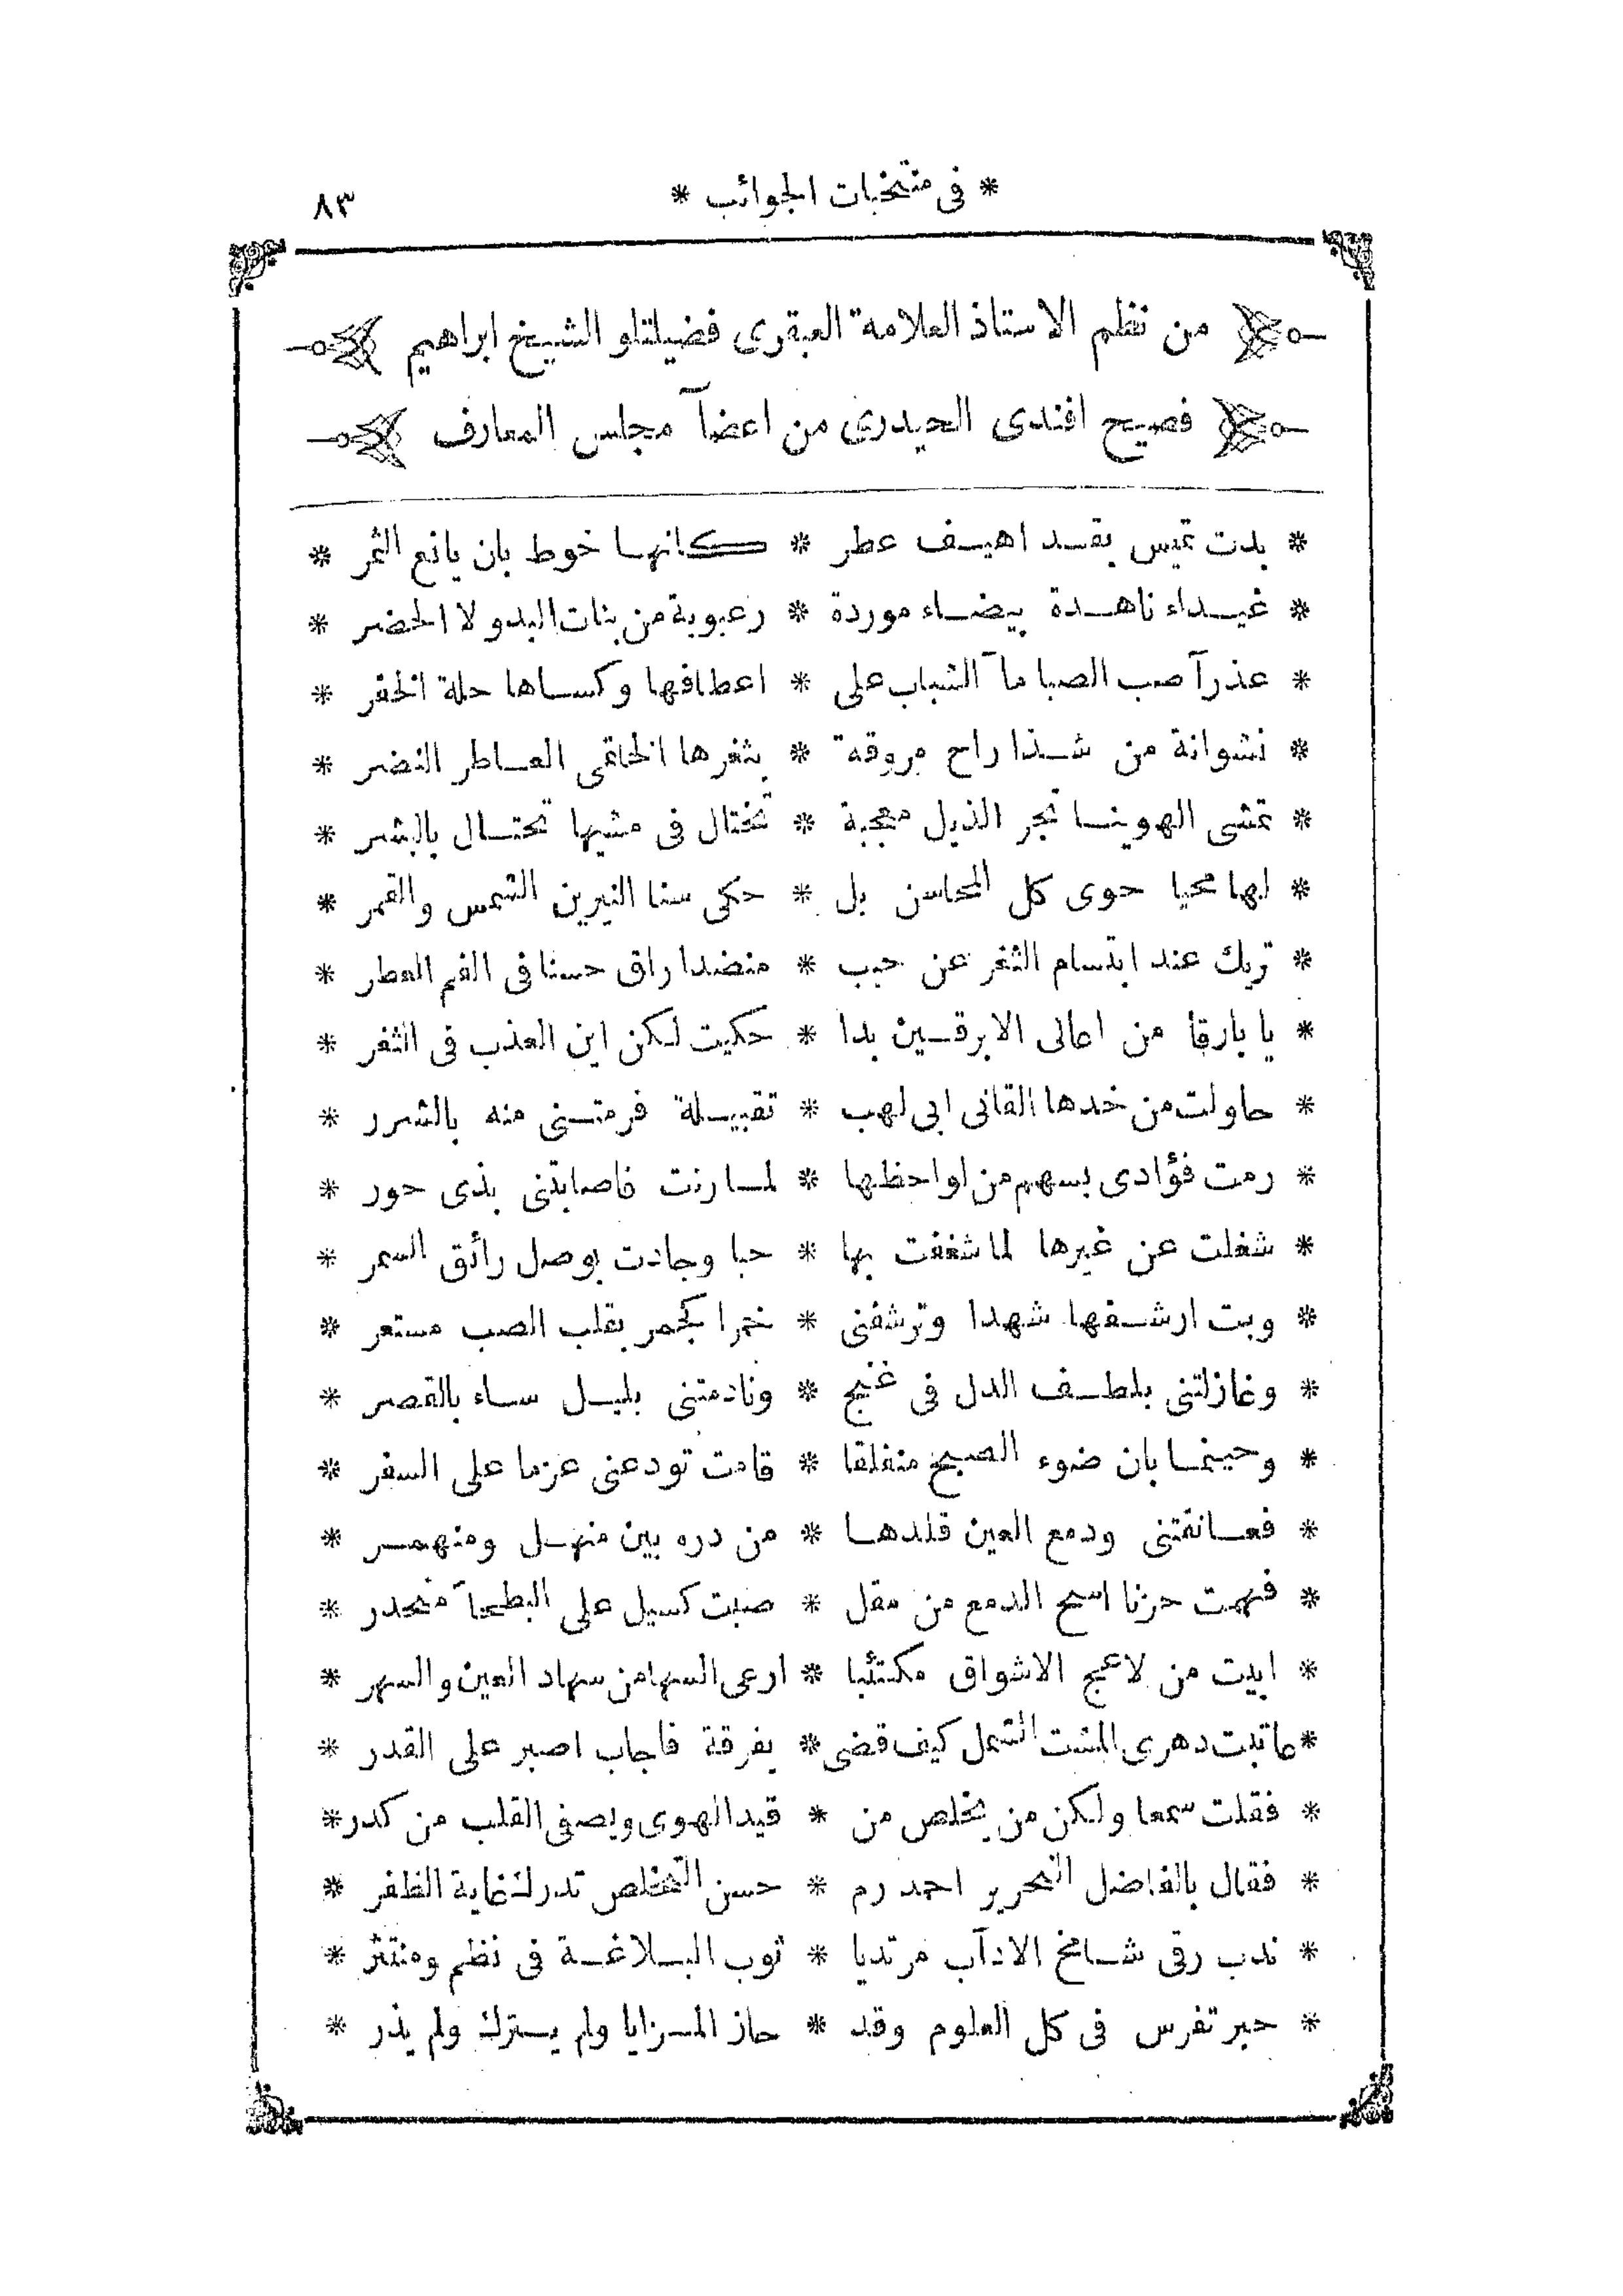 * فى منتخبات الجوائب * ٨٣
من نظم الاستاذ العلامة العبقرى فضيلتلو الشيخ ابراهيم
فصيح افندى الحيدرى من اعضآ مجلس المعارف
* بدت تميس بقد اهيف عطر * كانها خوط بان يانع الثمر *
* غيداء ناهدة بيضاء موردة * رعبوبة من بنات البدو لا الحضر *
* عذرآ صب الصبا مآ الشباب على * اعطافها وكساها حلة الخفر *
* نشوانة من شذا راح مروقة * بثغرها الخاتمى العاطر النضر *
* تمشى الهوينا تجر الذيل معجبة * تختال فى مشيها تحتال بالبشر *
* لها محيا حوى كل المحاسن بل * حكى سنا النيرين الشمس والقمر *
* تريك عند ابتسام الثغر عن حبب * منضدا راق حسنا فى الفم العطر *
* يا بارقا من اعالى الابرقين بدا * حكيت لكن اين العذب فى الثغر *
* حاولت من خدها القانى ابى لهب * تقبيلة فرمتنى منه بالشرر *
* رمت فؤادى بسهم من لواحظها * لما رنت فاصابتنى بذى حور *
* شغلت عن غيرها لما شغفت بها * حبا وجادت بوصل رائق السمر *
* وبت ارشفها شهدا وترشفنى * خمرا كجمر بقلب الصب مستعر *
* وغازلتنى بلطف الدل فى غنج * ونادمتنى بليل ساء بالقصر *
* وحينما بان ضوء الصبح منفلقا * قامت تودعنى عزما على السفر *
* فعانقتنى ودمع العين قلدها * من دره بين منهل ومنهمر *
* فهمت حزنا اسح الدمع من مقل * صبت كسيل على البطحآ منحدر *
* ابيت من لاعج الاشواق مكتئبا * ارعى السها من سهاد العين والسهر *
* عاتبت دهرى المشت الشمل كيف قضى * بفرقة فاجاب اصبر على القدر *
* فقلت سمعا ولكن من يخلص من * قيد الهوى ويصفى القلب من كدر *
* فقال بالفاضل النحرير احمد رم * حسن التخلص تدرك غاية الظفر *
* ندب رقى شامخ الادآب مرتديا * ثوب البلاغة فى نظم ومنتثر *
* حبر تفرس فى كل العلوم وقد * حاز المزايا ولم يترك ولم يذر *